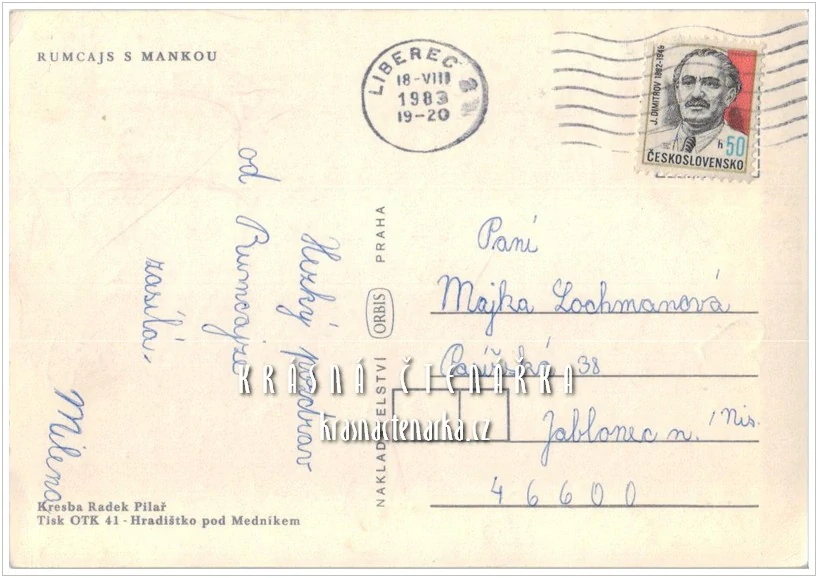 RUMCAJS S MANKOU
LIBEREC
18-VIII
1983
19-20
J. DIMITROV 1882-1949
h 50
ČESKOSLOVENSKO
Hezký pozdrav
od Rumcajze
zasílá
Milena
NAKLADATELSTVÍ ORBIS PRAHA
Paní
Majka Lochmanová
Pařížská 38
Jablonec n/Nis.
46600
KRÁSNÁ ČTENÁŘKA
krasnactenarka.cz
Kresba Radek Pilař
Tisk OTK 41 - Hradištko pod Medníkem